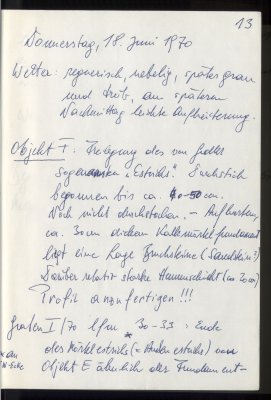 13
Donnerstag, 18. Juni 1970
Wetter: regnerisch, nebelig, später grau
und trüb, am späteren
Nachmittag leichte Aufheiterung.
Objekt I: Freilegung des von
sogenannten "Estrichs". Suchstich
begonnen bis ca. 40-50 cm.
Noch nicht durchstochen. - Auf
ca. 30 cm dickem Kalkmörtelfundament
liegt eine Lage Bruchsteine (Sandstein?)
Darüber relativ starke Humusschicht (ca. 20 cm)
Profil anzufertigen!!!
Graben I/70 lfm 30-33: Ende
des Mörtelestrichs (= estrichs) von
* am
N-Ecke
Objekt E ähnlich des Fundament-